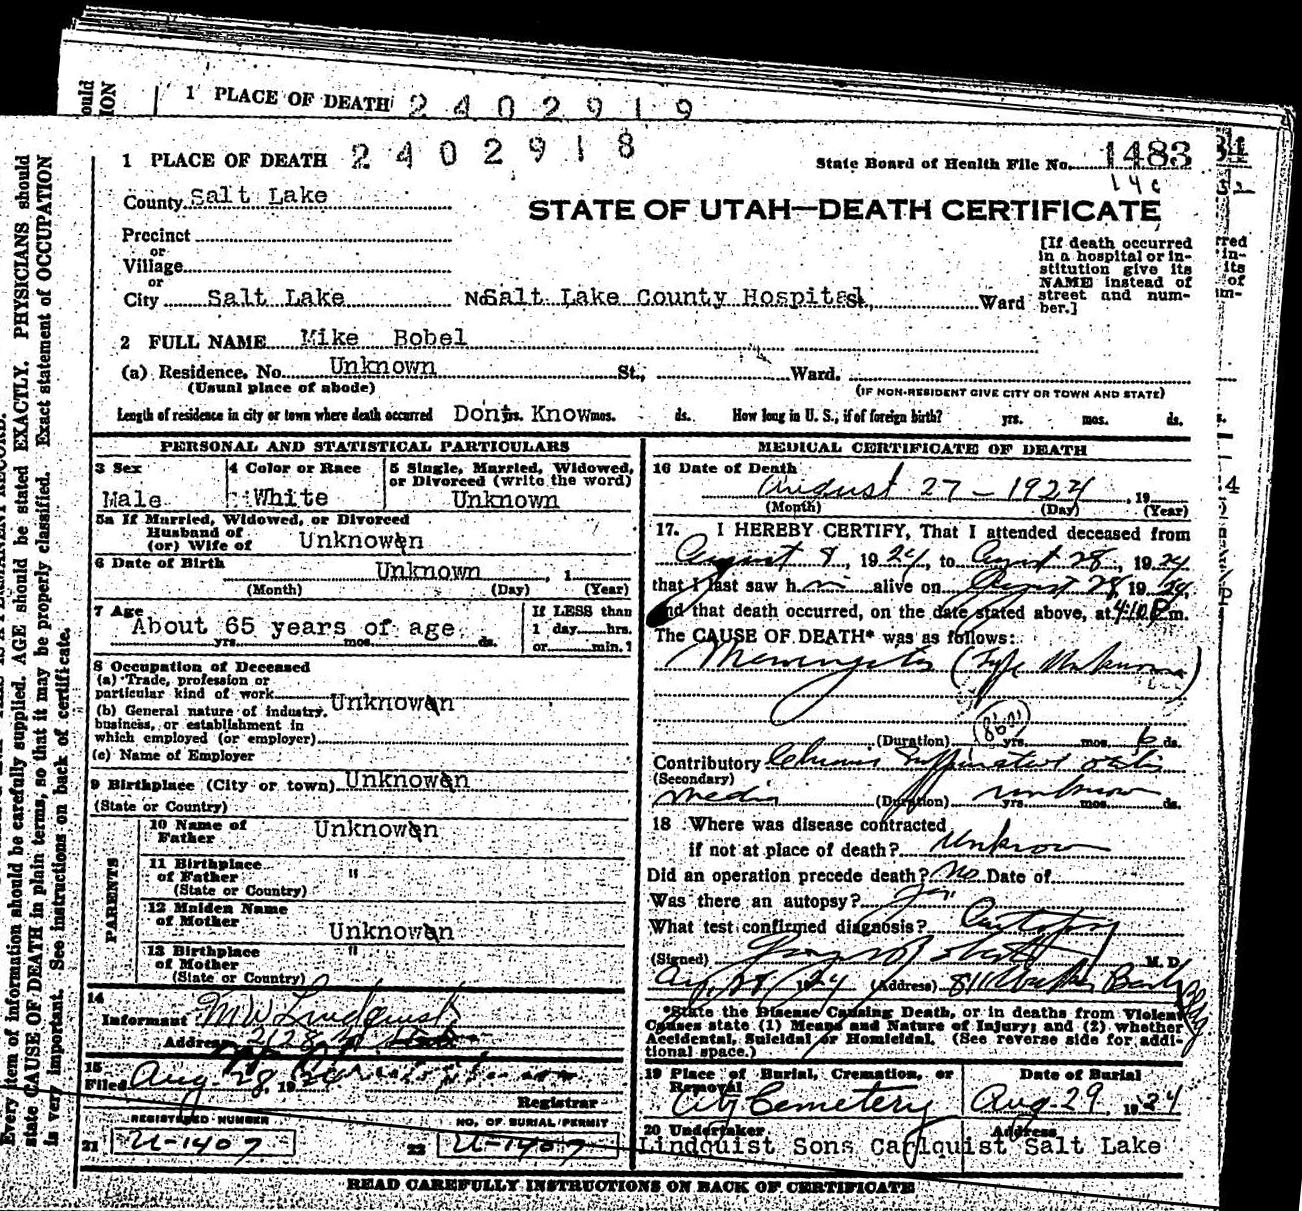 1 PLACE OF DEATH 2402919
1 PLACE OF DEATH 2402918
State Board of Health File No. 1483
14c
County Salt Lake
STATE OF UTAH—DEATH CERTIFICATE
Precinct
or
Village
or
City Salt Lake No. Salt Lake County Hospital St., Ward
[If death occurred in a hospital or institution give its NAME instead of street and number.]
2 FULL NAME Mike Bobel
(a) Residence. No. Unknown St., Ward.
(Usual place of abode) (IF NON-RESIDENT GIVE CITY OR TOWN AND STATE)
Length of residence in city or town where death occurred Dont yrs. Know mos. ds. How long in U. S., if of foreign birth? yrs. mos. ds.
PERSONAL AND STATISTICAL PARTICULARS
3 Sex
Male
4 Color or Race
White
5 Single, Married, Widowed, or Divorced (write the word)
Unknown
5a If Married, Widowed, or Divorced
Husband of
(or) Wife of Unknowen
6 Date of Birth Unknown, 1
(Month) (Day) (Year)
7 Age
About 65 years of age
yrs. mos. ds.
If LESS than
1 day hrs.
or min.?
8 Occupation of Deceased
(a) Trade, profession or
particular kind of work Unknowen
(b) General nature of industry,
business, or establishment in
which employed (or employer)
(c) Name of Employer
9 Birthplace (City or town) Unknowen
(State or Country)
PARENTS
10 Name of Father Unknowen
11 Birthplace of Father "
(State or Country)
12 Maiden Name of Mother Unknowen
13 Birthplace of Mother "
(State or Country)
14
Informant M W Lindquist
Address
15
Filed Aug. 28, 1924
Registrar
REGISTERED NUMBER
21 U-1407
NO. OF BURIAL PERMIT
22 U-1407
MEDICAL CERTIFICATE OF DEATH
16 Date of Death
August 27 - 1924, 19
(Month) (Day) (Year)
17. I HEREBY CERTIFY, That I attended deceased from
August 8, 1924, to August 28, 1924
that I last saw h im alive on August 28, 1924,
and that death occurred, on the date stated above, at 4:10 P m.
The CAUSE OF DEATH* was as follows:
Meningitis (Type Unknown)
(Duration) yrs. mos. 6 ds.
Contributory Chronic Suppurative otitis
(Secondary)
media (Duration) unknown yrs. mos. ds.
18 Where was disease contracted
if not at place of death? Unknown
Did an operation precede death? No Date of
Was there an autopsy? Yes
What test confirmed diagnosis? Autopsy
(Signed) M. D.
Aug. 28, 1924 (Address) 811 Walker Bank Bldg
*State the Disease Causing Death, or in deaths from Violent
Causes state (1) Means and Nature of Injury; and (2) whether
Accidental, Suicidal or Homicidal. (See reverse side for additional space.)
19 Place of Burial, Cremation, or Removal
City Cemetery
Date of Burial
Aug. 29 1924
20 Undertaker
Lindquist Sons Carlquist
Address
Salt Lake
READ CAREFULLY INSTRUCTIONS ON BACK OF CERTIFICATE
Every item of information should be carefully supplied. AGE should be stated EXACTLY. PHYSICIANS should
state CAUSE OF DEATH in plain terms, so that it may be properly classified. Exact statement of OCCUPATION
is very important. See instructions on back of certificate.